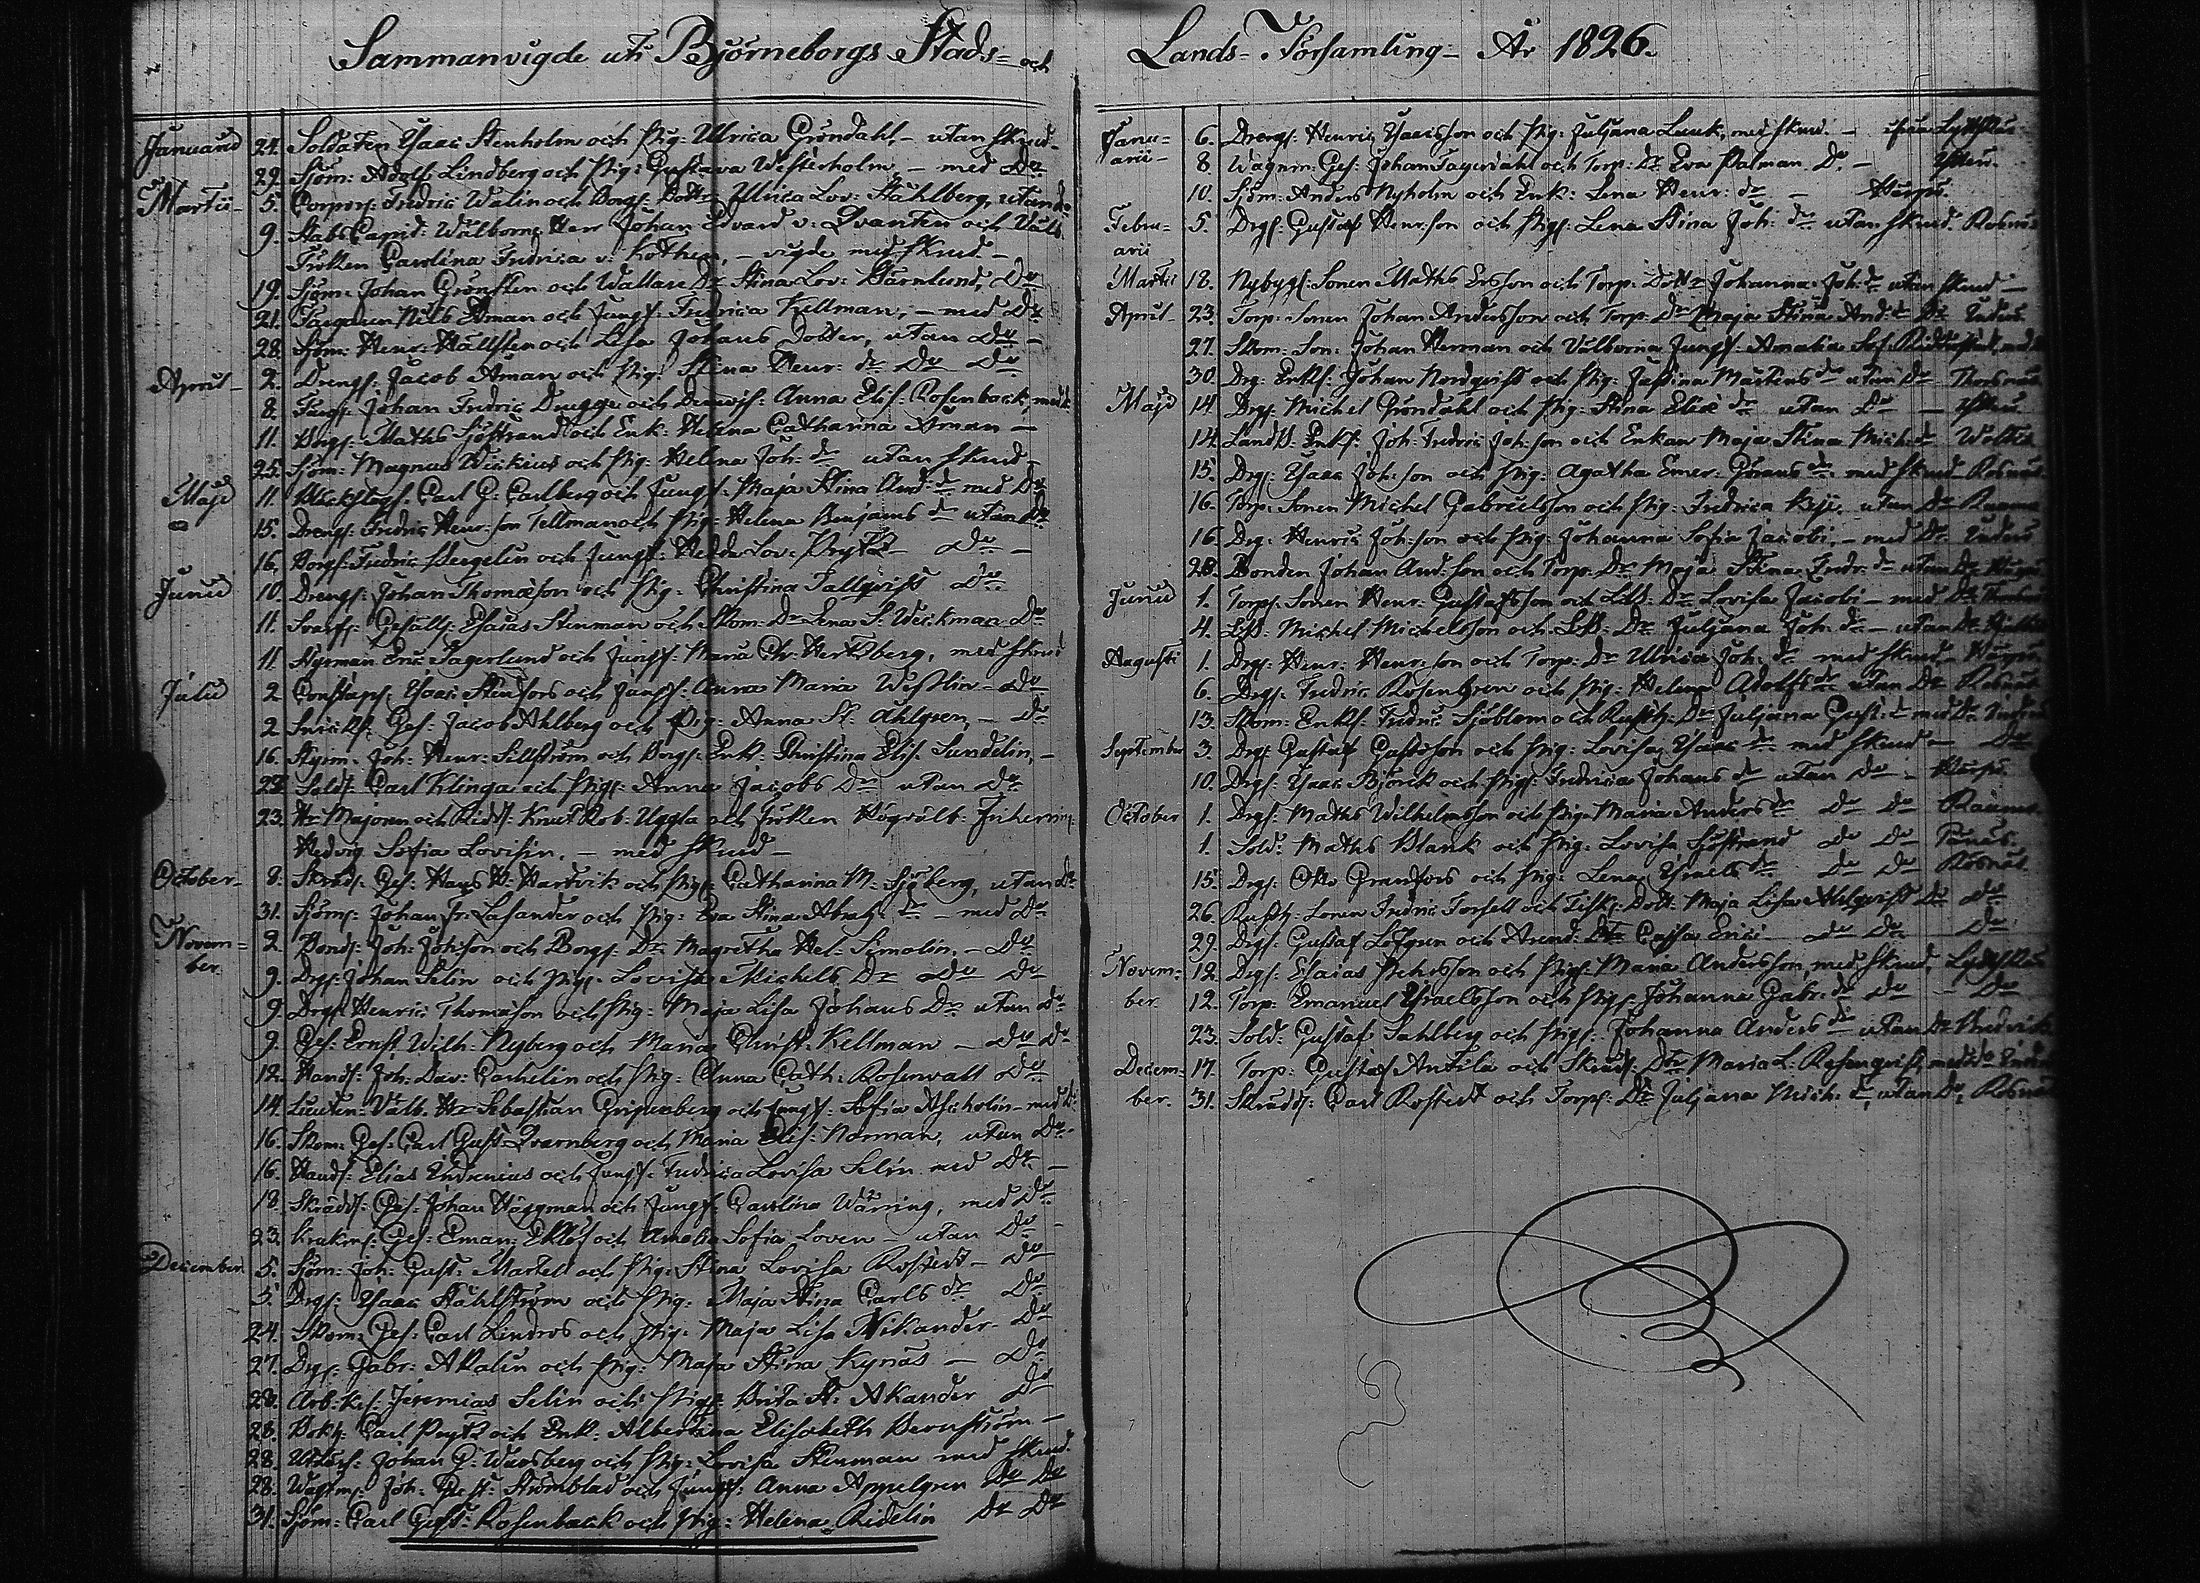 Sammanvigde uti Björneborgs Stads- och
Januarii 24. Soldaten Isaac Stenholm och Pig: Ulrica Gröndahl, - utan skrud -
29. Sjöm: Adolf Lindberg och Pig: Gustava Westerholm, - med Do
Martii 5. Corpors: Fredric Walin och Borgs: Dottr Ulrica Lov: Ståhlberg, utan do
9. Stabs Capit: Wälborne Herr Johan Edvard v: Qvanten och Välb.
Fröken Carolina Fredrica v: Kothen, - vigde med skrud -
19. Sjöm: Johan Grönsten och Wallare Dr Stina Lov: Bärnlund, Do
21. Färgaren Nils Åman och Jungf: Fredrica Kellman, - med Do
28. Sjöm: Henr: Hällsten och Lisa Johans Dotter, utan Do -
April 2. Drengs: Jacob Åman och Pig: Stina Henr: dr Do Do
8. Johan Fredric Dragge och Anna Elis: Rosenback, med d:
11. Borgs: Maths Sjöstrand och Enk: Helena Catharina Åman -
25. Sjöm: Magnus Wickius och Pig: Helena Joh: dr utan skrud -
Maji 11. Carl G: Carlberg och Jungf: Maja Stina And: dr med Do
15. Drengs: Fredric Henr:son Tellman och Pig: Helena Benjams dr utan Do
16. Borgs: Fredric Bergelin och Jungf: Hedda Lov: Prytz Do -
Junii 10. Drengs: Johan Thomasson och Pig: Christina Tallqvist Do
11. Svarfv: Gesälls: Esaias Stenman och Skom: Dr Lena S: Weckman Do
11. Styrman Eric Lagerlund och Jungf: Maria Chr: Hertzberg, med skrud
Julii 2 Constaps: Isaac Stenfors och Jungf: Anna Maria Westlin - Do
2. Snick: Ges: Jacob Ahlberg och Pig: Anna St: Ahlgren - Do
16. Styrm: Joh: Henr: Sillström och Borgs: Enk: Christina Elis: Sundelin, -
23. Sold: Carl Klinga och Pigs: Anna Jacobs Dr utan Do
23. Hr Majoren och Ridd: Knut Rob: Uggla och Fröken Högvälb: Friherrin:
Hedvig Sofia Lovisin. - med skrud -
October 8. Skrädd: Ges: Hans H: Hartvik och Pigs: Catharina M: Sjöberg, utan Do
31. Sjöm: Johan Fr: Lasander och Pig: Eva Stina Abrah: dr - med Do
Novem- 2. Bonds: Joh: Joh:son och Borgs: Dr Magretha Hel: Simolin, - Do
ber. 9. Drgs: Johan Selin och Pigs: Lovisa Michels Dr Do Do
9. Drgs: Henric Thomasson och Pig: Maja Lisa Johans Dr utan Do
9. Ges: Ernst Wilh: Nyberg och Maria Christ: Kellman - Do Do
12. Hands: Joh: Dav: Carhelin och Pig: Anna Cath: Rosenvall Do
14. Lieuten: Välb. Hr Sebastian Gripenberg och Jungf: Sofia Ascholin - med d:
16. Skom: Ges: Carl Gust: Qvarnberg och Maria Elis: Norman, utan Do
16. Hands: Elias Indrenius och Jungf: Fredrica Lovisa Selin med Do -
18. Skrädd: Ges: Johan Häggman och Jungf: Carolina Wäring, med Do
23. Krukm: Ges: Eman: Eklöf och Amalia Sofia Loven - utan Do
December 5. Sjöm: Joh: Gust: Martell och Pig: Stina Lovisa Rostedt - Do
5. Drgs: Isaac Ståhlström och Pig: Maja Stina Carls dr Do
24. Skom: Ges: Carl Lindros och Pig: Maja Lisa Nikander - Do
27. Drgs: Gabr: Akalin och Pig: Maja Stina Kynäs - Do
28. Arb: k: Jeremias Selin och Pigs: Brita St: Akander Do
28. Carl Prytz och Enk: Albertina Elisabeth Bernström -
28. Johan G: Warsberg och Pig: Lovisa Stenman med skrud.
28. Joh: Gust: Strömblad och Jungf: Anna Appelgren Do Do
31. Sjöm: Carl Gust: Rosenback och Pig: Helena Ridelin Do Do
Lands-Församling - År 1826.
Janu- 6. Drengs: Henric Isacsson och Pig: Juljana Luuk, med skrud. -
arii - 8. Wagnm: Ges: Johan Fagerdahl och Torp: Dr Eva Palman Do -
10. Sjöm: Anders Nyholm och Enk: Lena Henr: dr -
Febru- 5. Drgs: Gustaf Henr:son och Pigs: Lena Stina Joh: dr utan skrud. Rosnäs
arii
Martii 18. Nybygg: Sonen Maths Ersson och Torp: Dottr Johanna Joh: dr utan skrud -
April - 23. Torp: Sonen Johan Andersson och Torp: Dr Maja Stina And: dr Do
27. Skom: Son: Johan Herman och Välborna Jungf: Amalia Sof:
30. Drg: Enkl: Johan Nordqvist och Pig: Justina Mårtens dr utan Do Thorsnäs
Maji 14. Drgs: Michel Gröndahl och Pig: Stina Elias dr utan Do -
14. Landsb: Enkl: Joh: Fredric Joh:son och Enkan Maja Stina Mich: dr
15. Drgs: Isaac Joh:son och Pig: Agatha Emer: Görans dr med skrud - Rosnäs
16. Torp: Sonen Michel Gabrielsson och Pig: Fredrica utan Do
16. Drg: Henric Joh:son och Pig: Johanna Sofia Jacobi, - med Do
28. Bonden Johan And:son och Torp: Dr Maja Stina Fredr: dr utan Do
Junii 1. Torps: Sonen Henr: Gustafsson och Lbs: Dr Lovisa Jacobi - med Do
4. Lbs: Michel Michelsson och Lbs: Dr Juljana Joh: dr - utan Do
Augusti 1. Drgs: Henr: Henr:son och Torp: Dr Ulrica Joh: dr med skrud -
6. Drgs: Fredric Rosengren och Pig: Helena Adolfs dr utan Do
13. Skom: Enkl: Fredric Sjöblom och Rusth: Dr Juljana Gust: dr med Do
September 3. Drgs: Gustaf Gustafsson och Pig: Lovisa Isaac dr med skrud - Do
10. Drgs: Isaac Björck och Pigs: Fredrica Johans dr utan Do -
October 1. Drgs: Maths Wilhelmsson och Pig: Maria Anders dr Do Do Raumo
1. Sold: Maths Blank och Pig: Lovisa Sjöstrand Do Do
15. Drgs: Otto Granfors och Pig: Lena Israels dr Do Do Rosnäs
26. Rusth: Sonen Fredric Forsell och Fisk: Dott: Maja Lisa Ahlqvist Do Do
29. Drgs: Gustaf Löfgren och Arend: Dtr Cajsa Erici Do Do Do
Novem- 12. Drgs: Esaias Mich:sson och Pigs: Maria Andersson, med skrud,
ber 12. Torp: Emanuel Israelsson och Pigs: Johanna Gabr: dr Do - Do
23. Sold: Gustaf Sahlberg och Pigs: Johanna Anders dr utan Do
Decem- 17. Torp: Gustaf Antila och Skrädd: Dtr Maria L: Rosenqvist, med do
ber. 31. Skrädd: Carl Rostedt och Torps: Dr Juljana Mich: dr, utan Do, Rosnäs